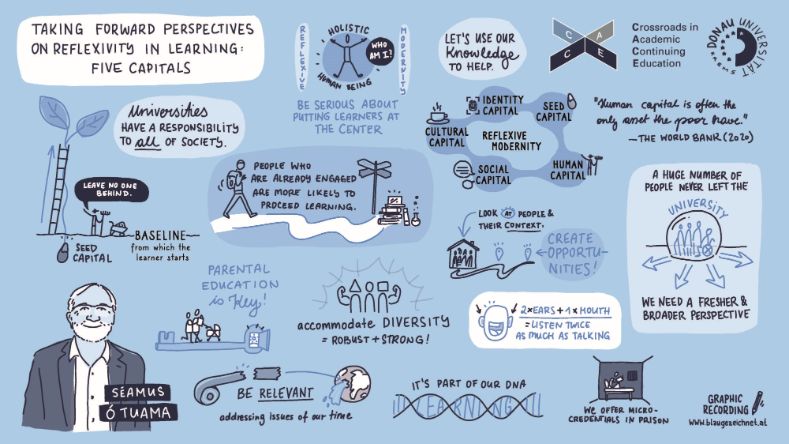 TAKING FORWARD PERSPECTIVES
ON REFLEXIVITY IN LEARNING:
FIVE CAPITALS
REFLEXIVE
HOLISTIC
HUMAN BEING
WHO AM I?
MODERNITY
BE SERIOUS ABOUT
PUTTING LEARNERS AT
THE CENTER
LET'S USE OUR
Knowledge
TO HELP.
CACE
Crossroads in
Academic
Continuing
Education
DONAU UNIVERSITÄT
KREMS
Universities
HAVE A RESPONSIBILITY
TO all OF SOCIETY.
LEAVE NO ONE
BEHIND.
BASELINE
from which the
learner starts
SEED
CAPITAL
PEOPLE WHO
ARE ALREADY ENGAGED
ARE MORE LIKELY TO
PROCEED LEARNING.
IDENTITY
CAPITAL
SEED
CAPITAL
CULTURAL
CAPITAL
REFLEXIVE
MODERNITY
SOCIAL
CAPITAL
HUMAN
CAPITAL
"Human capital is often the
only asset the poor have."
—THE WORLD BANK (2020)
LOOK AT PEOPLE &
THEIR CONTEXT.
CREATE
OPPORTU-
NITIES!
A HUGE NUMBER OF
PEOPLE NEVER LEFT THE
UNIVERSITY
WE NEED A FRESHER &
BROADER PERSPECTIVE
PARENTAL
EDUCATION
is Key!
accommodate DIVERSITY
= ROBUST + STRONG!
2xEARS + 1xMOUTH
= LISTEN TWICE
AS MUCH AS TALKING
SÉAMUS
Ó TUAMA
BE RELEVANT
addressing issues of our time
IT'S PART OF OUR DNA
LEARNING
WE OFFER MICRO-
CREDENTIALS IN PRISON
GRAPHIC
RECORDING
www.blaugezeichnet.at